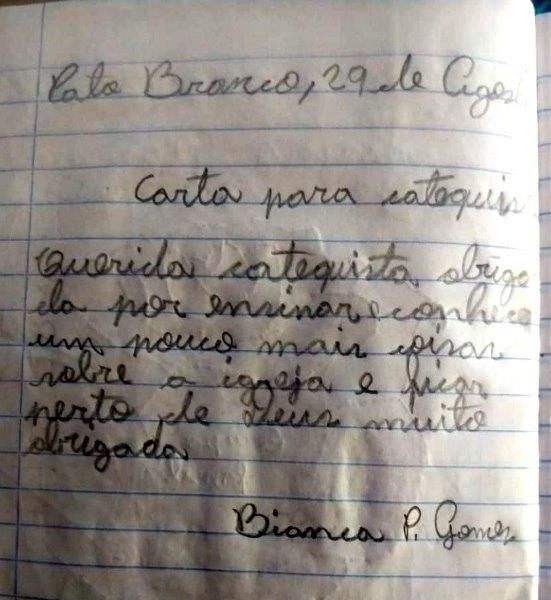 Pato Branco, 29 de Agos
Carta para catequis
Querida catequista obriga
da por ensinar e conhece
um pouco mais coisas
sobre a igreja e ficar
perto de Deus muito
obrigada
Bianca P. Gomes